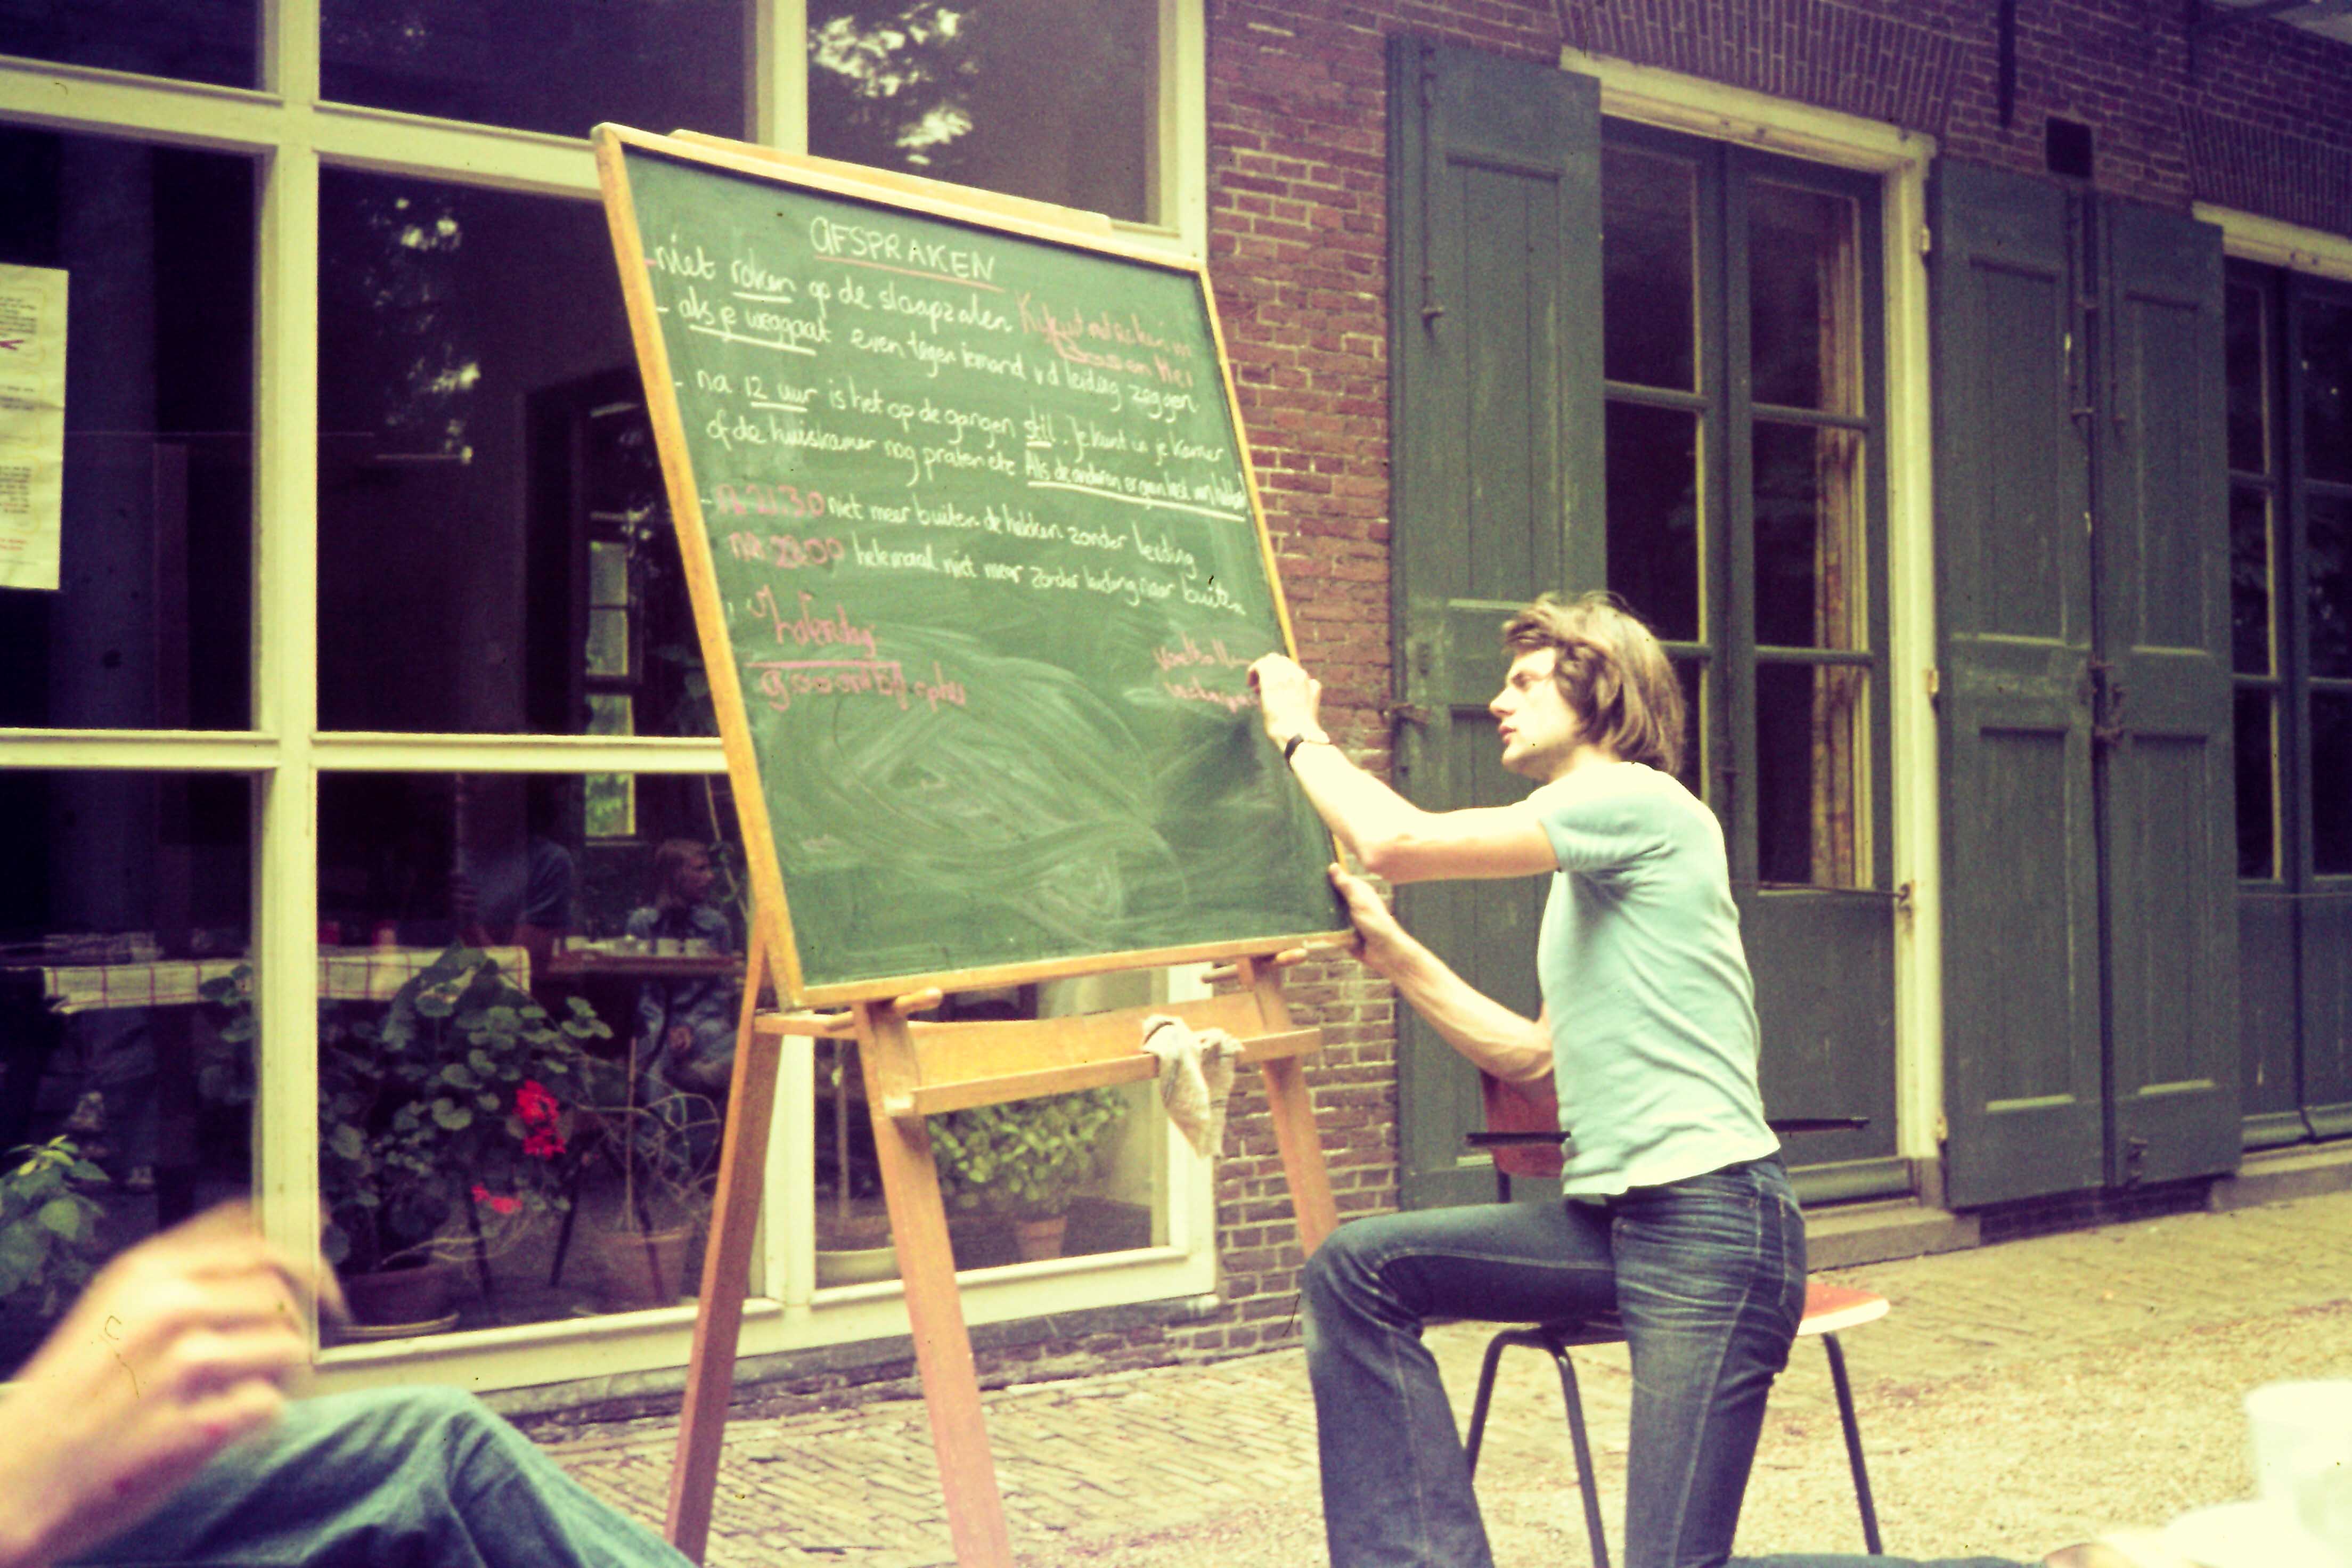 AFSPRAKEN
- niet roken op de slaapzalen
- als je weggaat even tegen iemand v d leiding zeggen
- na 12 uur is het op de gangen stil. Je kunt in je kamer
of de huiskamer nog praten etc Als de anderen er geen last van hebben
- na 21.30 niet meer buiten de hekken zonder leiding
na 23.00 helemaal niet meer zonder leiding naar buiten
Zaterdag